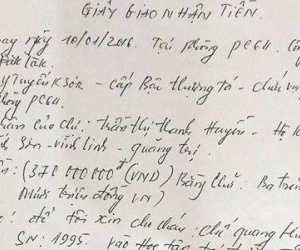 GIẤY GIAO NHẬN TIỀN.
ngày 10/01/2016. Tại phòng PC64.
Đăk Lăk.
Tuyến K Sơn - cấp Bậc thượng tá - chức
phòng PC64.
nhận của chị: Trần thị thanh Huyền - Hộ K
Sơn - Vĩnh Linh - quảng trị.
(370 000 000đ (VND) Bằng chữ: Ba tră
Mươi triệu đồng VN)
để tôi xin cho cháu: chế quang
SN: 1995. vào Học